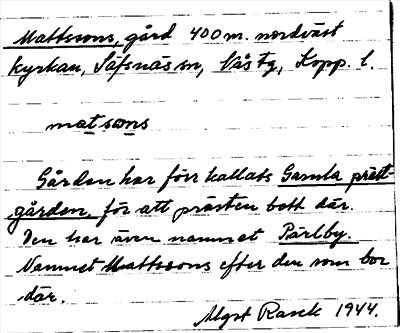 Mattssons, gård 400 m. nordväst
kyrkan, Säfsnäs sn, Nås tg, Kopp. l.
matsons
Gården har förr kallats Gamla präst-
gården, för att prästen bott där.
Den har även namnet Pärlby.
Namnet Mattssons efter den som bor
där.
Algot Rask 1944.